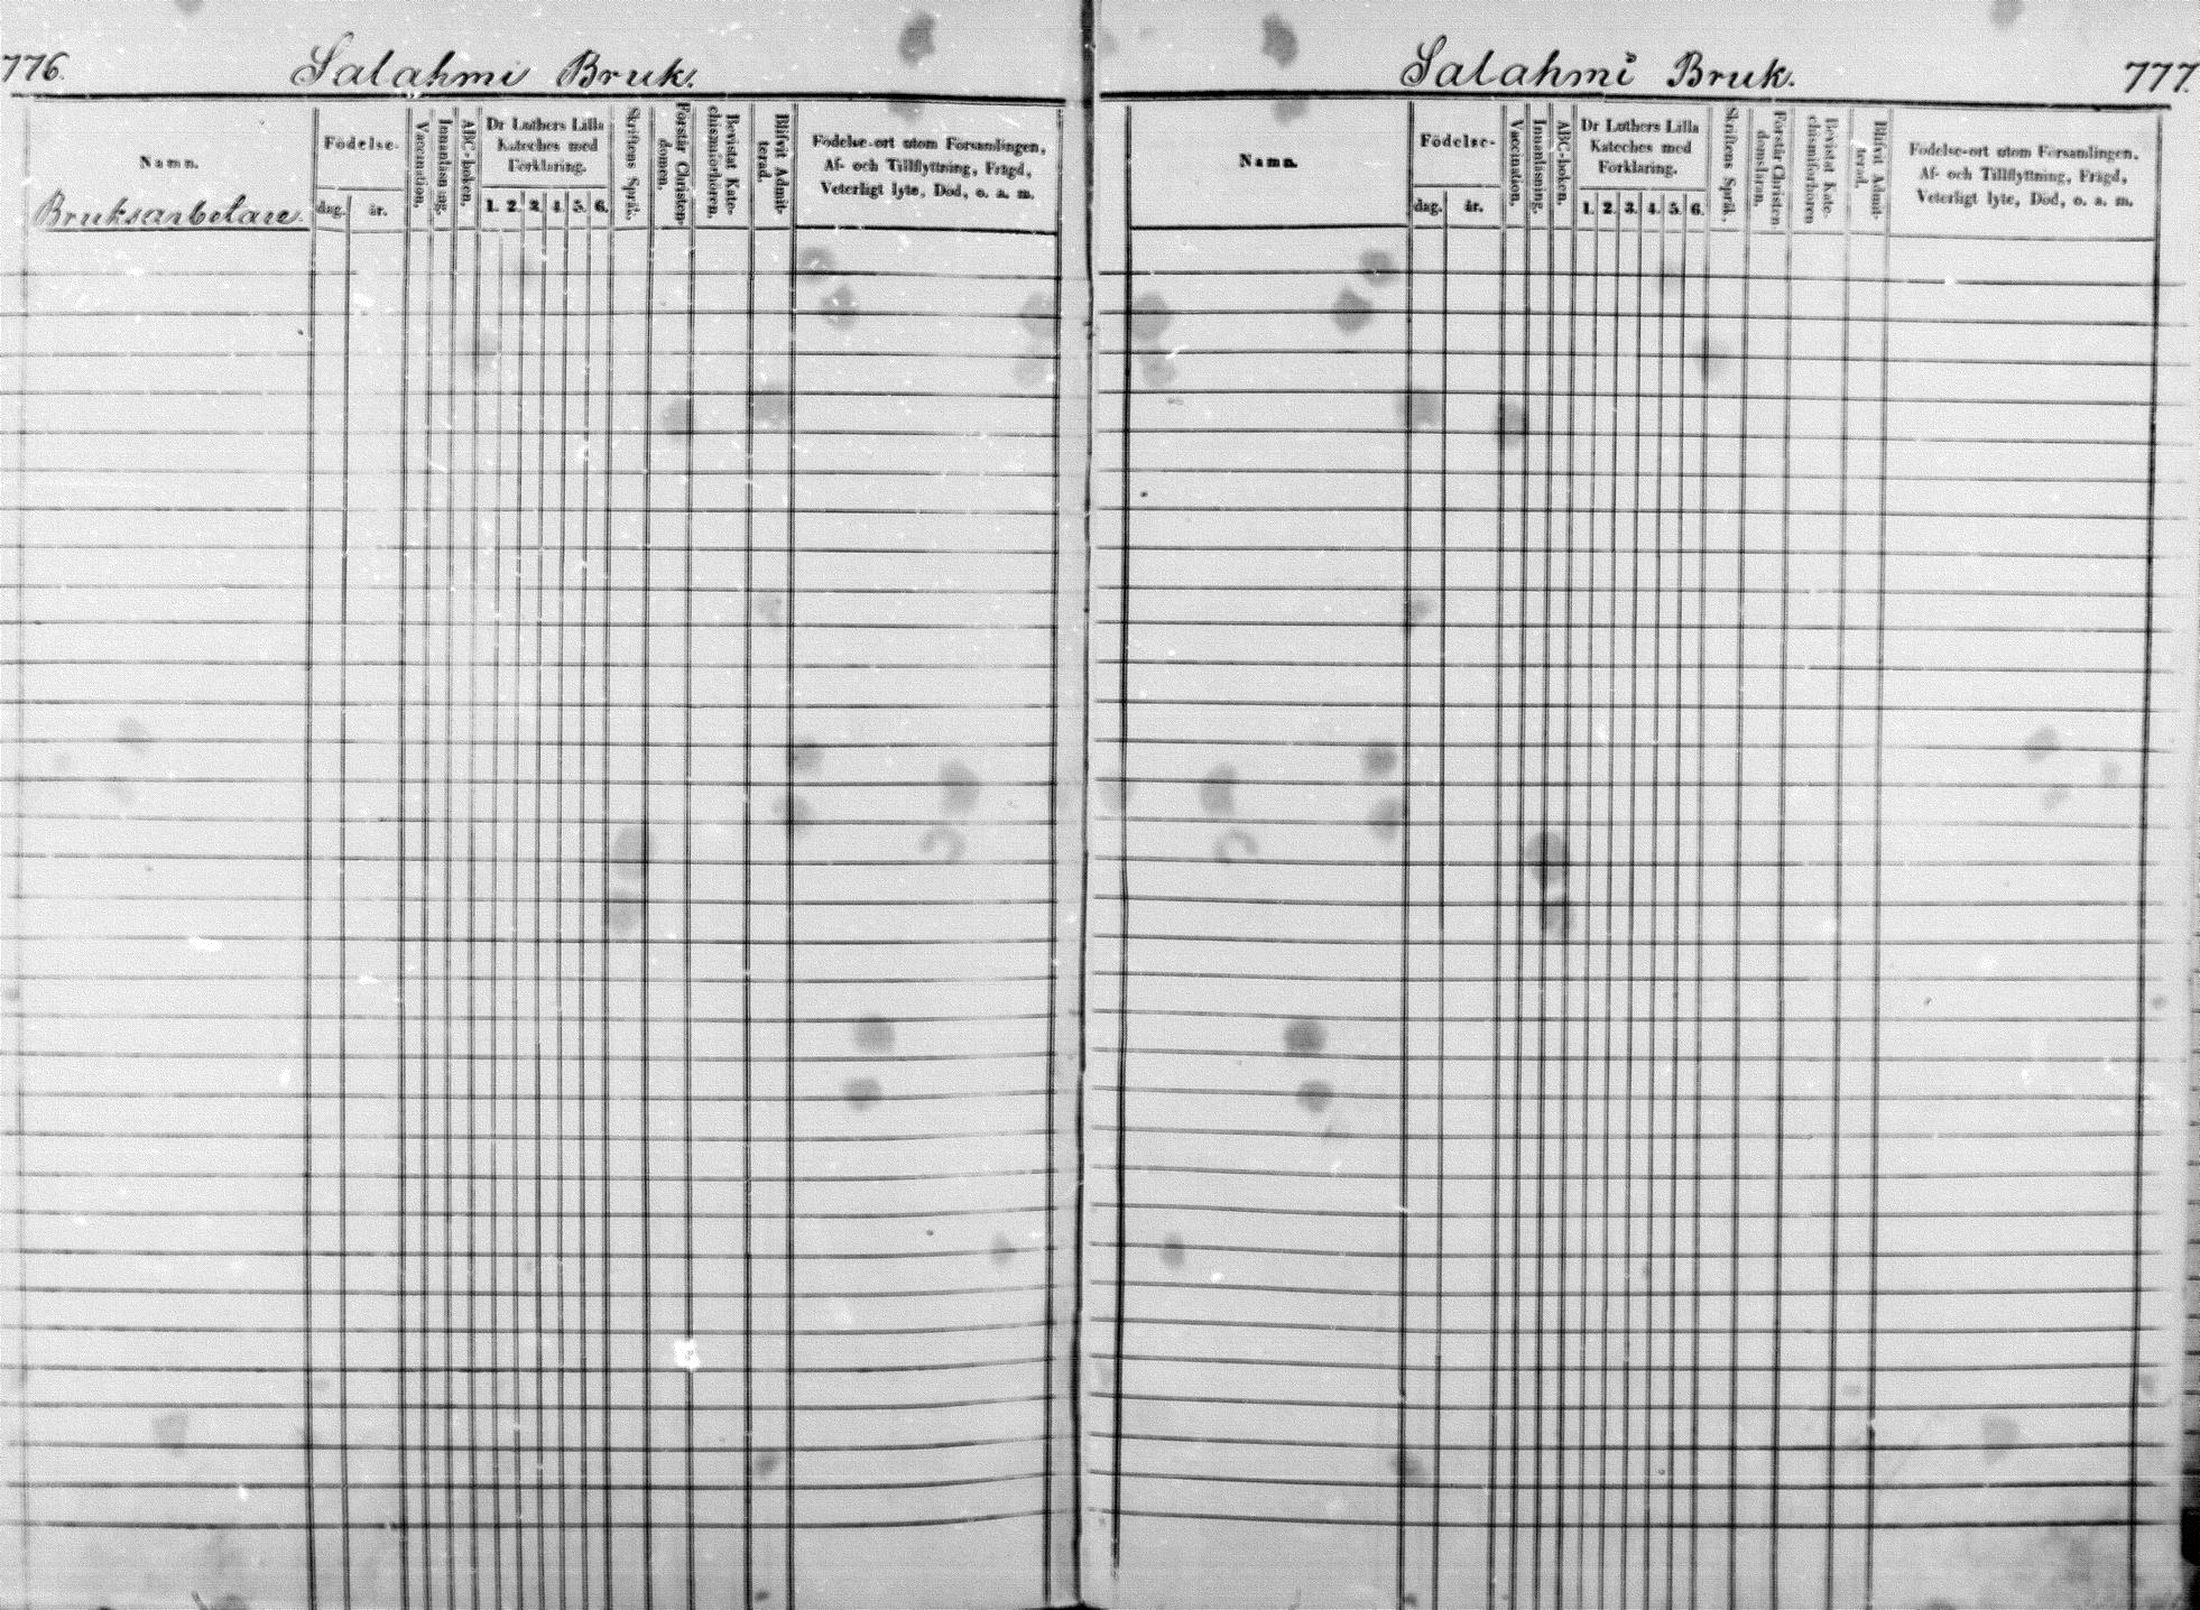 776. Salahmi Bruk.
Namn.
Bruksarbetare.
Födelse-
dag. år.
Vaccination.
Innanläsning.
ABC-boken.
Dr Luthers Lilla
Kateches med
Förklaring.
1. 2. 3. 4. 5. 6.
Skriftens Språk.
Förstår Christen-
domen.
Bevistat Kate-
chismiförhören.
Blifvit Admit-
terad.
Födelse-ort utom Församlingen,
Af- och Tillflyttning, Frägd,
Veterligt lyte, Död, o. a. m.
Salahmi Bruk. 777.
Namn.
Födelse-
dag. år.
Vaccination.
Innanläsning.
ABC-boken.
Dr Luthers Lilla
Kateches med
Förklaring.
1. 2. 3. 4. 5. 6.
Skriftens Språk.
Förstår Christen
domsläran.
Bevistat Kate-
chismiförhören
Blifvit Admit-
terad.
Födelse-ort utom Församlingen.
Af- och Tillflyttning, Frägd,
Veterligt lyte, Död, o. a. m.